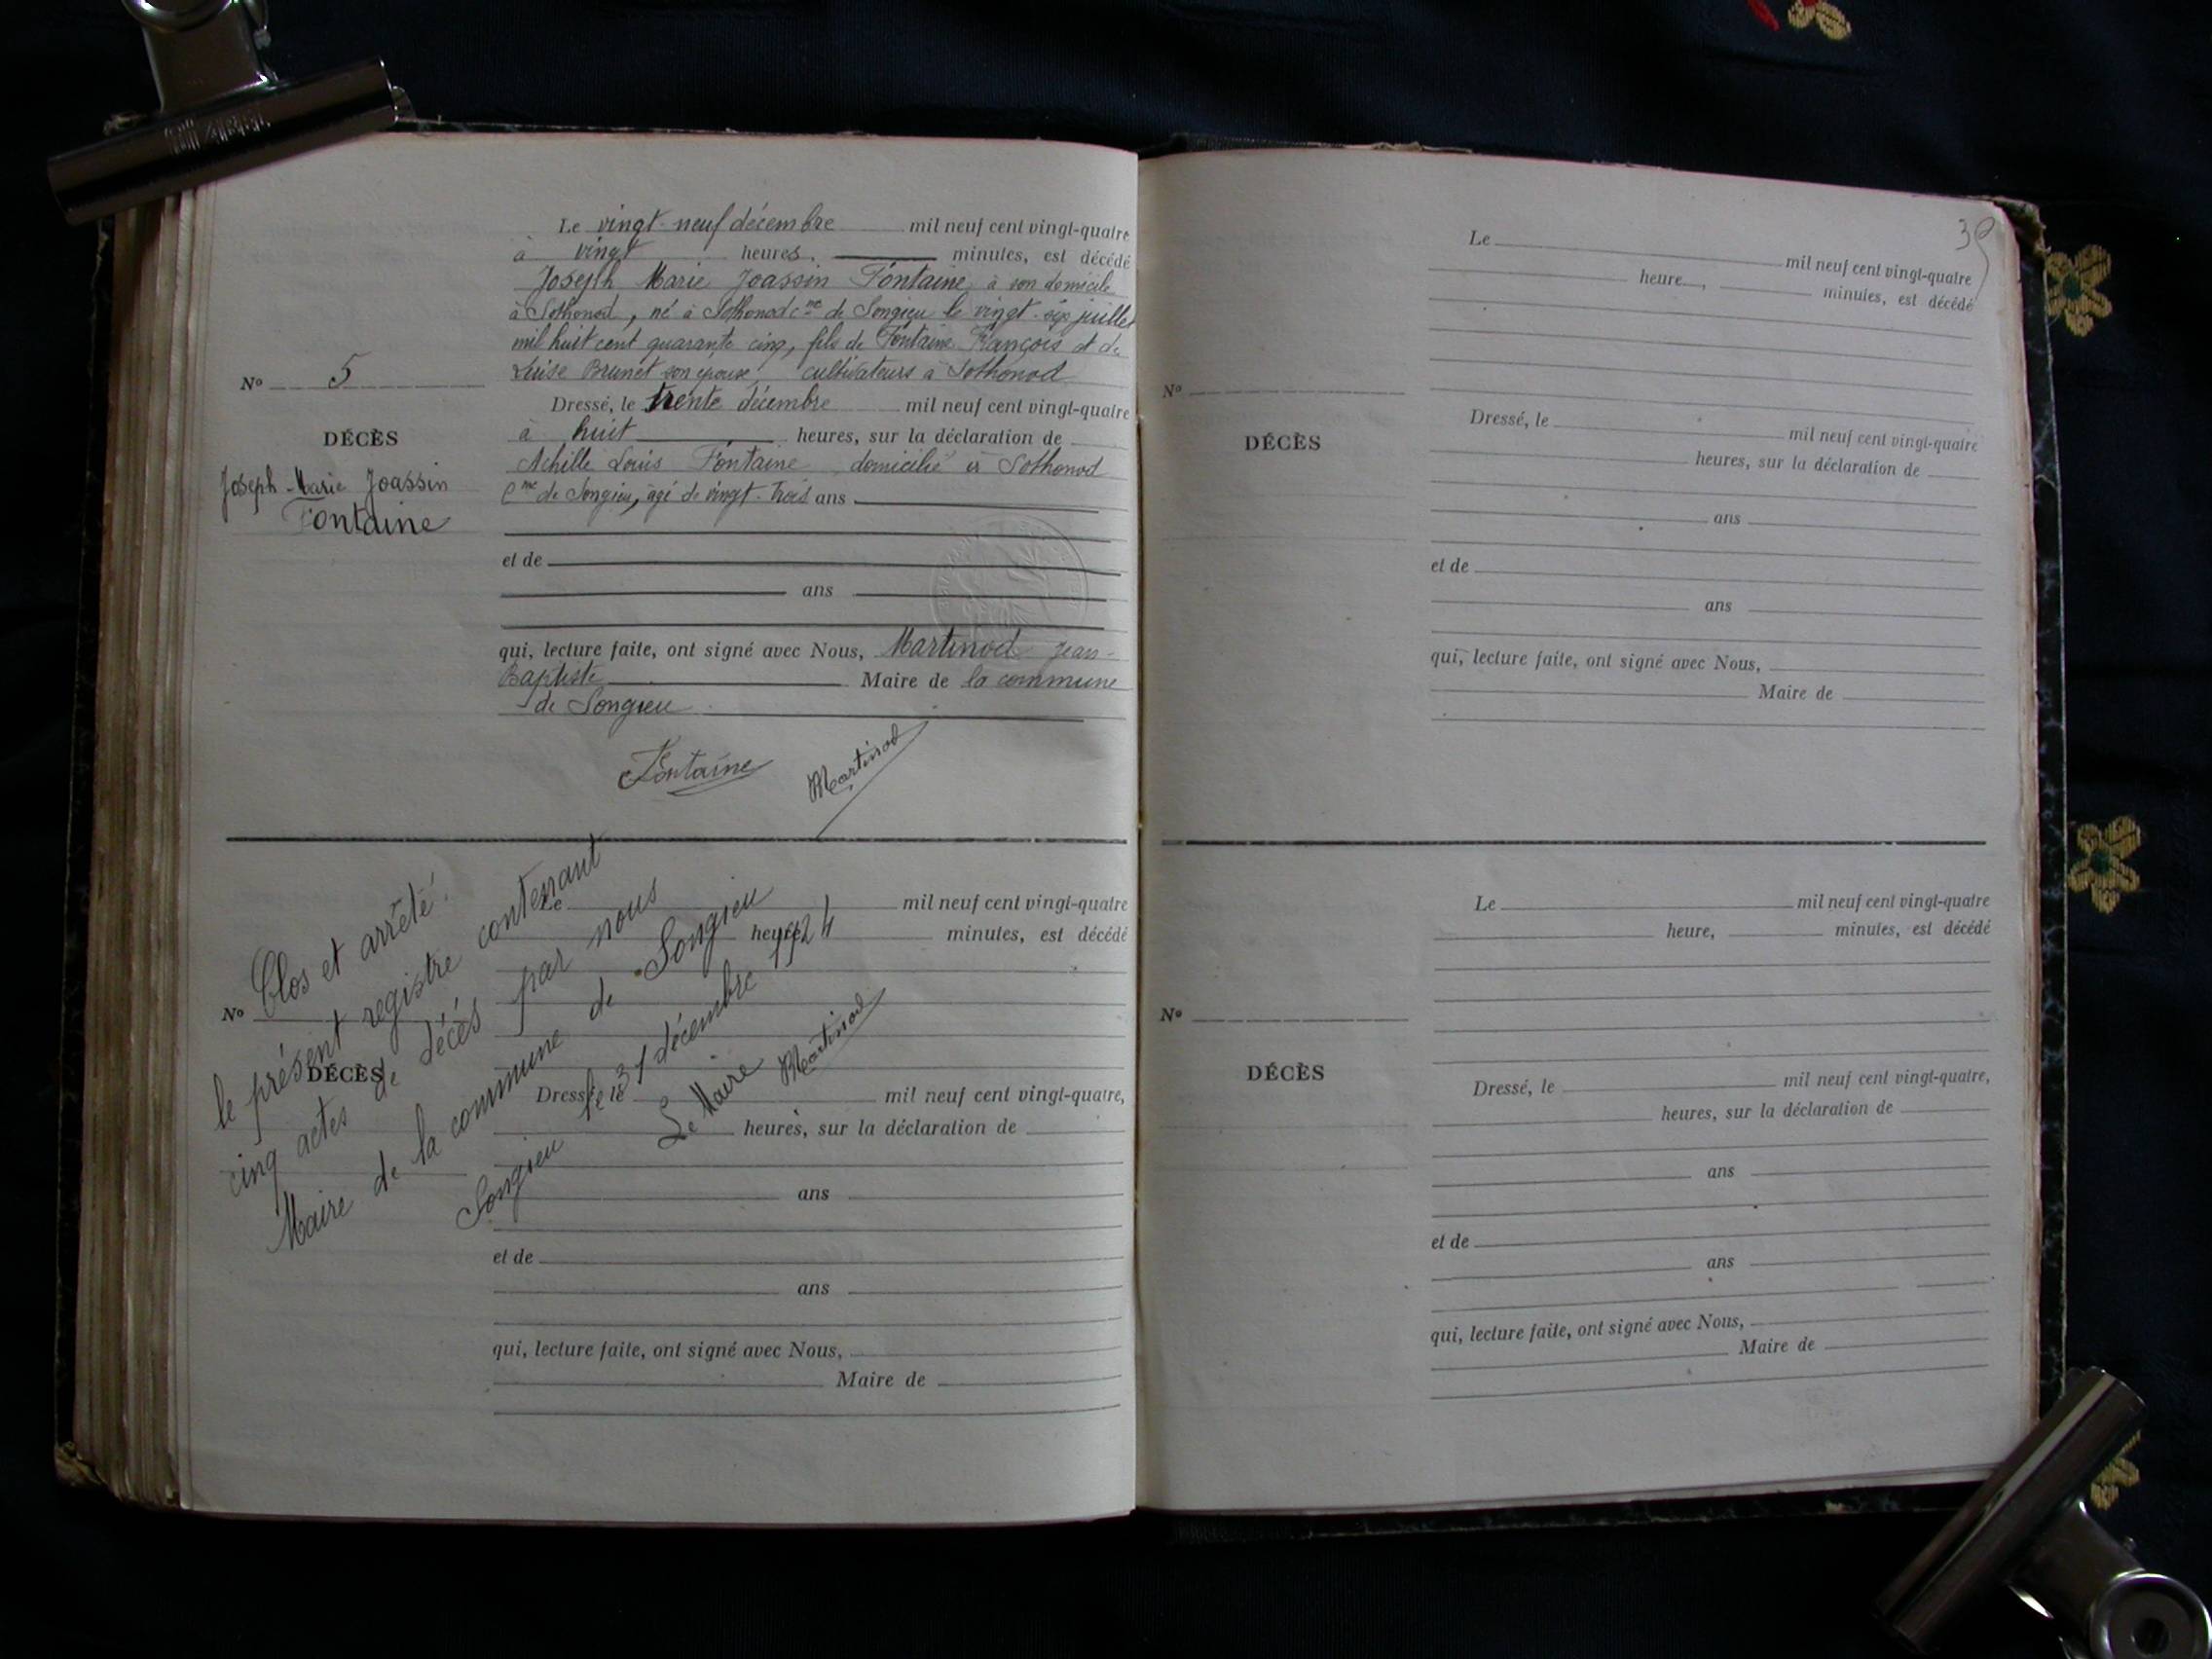 Le vingt-neuf décembre mil neuf cent vingt-quatre
à vingt heures, minutes, est décédé
Joseph Marie Joassin Fontaine, à son domicile
à Sothonod, né à Sothonod cne de Songieu le vingt-six juillet
mil huit cent quarante cinq, fils de Fontaine François et de
Luise Brunet son épouse, cultivateurs à Sothonod
No 5
DÉCÈS
Joseph-Marie Joassin
Fontaine
Dressé, le trente décembre mil neuf cent vingt-quatre
à huit heures, sur la déclaration de
Achille Louis Fontaine domicilié à Sothonod
Cne de Songieu, âgé de vingt-trois ans
et de
ans
qui, lecture faite, ont signé avec Nous, Martinod Jean-
Baptiste Maire de la commune
de Songieu
Fontaine
Martinod
Clos et arrêté.
le présent registre contenant
cinq actes de décès par nous
Maire de la commune de Songieu
Songieu le 31 décembre 1924
Le Maire
Martinod
Le mil neuf cent vingt-quatre
heures minutes, est décédé
No
DÉCÈS
Dressé, le mil neuf cent vingt-quatre,
heures, sur la déclaration de
ans
et de
ans
qui, lecture faite, ont signé avec Nous,
Maire de
Le mil neuf cent vingt-quatre
heure, minutes, est décédé
No
DÉCÈS
Dressé, le mil neuf cent vingt-quatre
heures, sur la déclaration de
ans
et de
ans
qui, lecture faite, ont signé avec Nous,
Maire de
Le mil neuf cent vingt-quatre
heure, minutes, est décédé
No
DÉCÈS
Dressé, le mil neuf cent vingt-quatre,
heures, sur la déclaration de
ans
et de
ans
qui, lecture faite, ont signé avec Nous,
Maire de